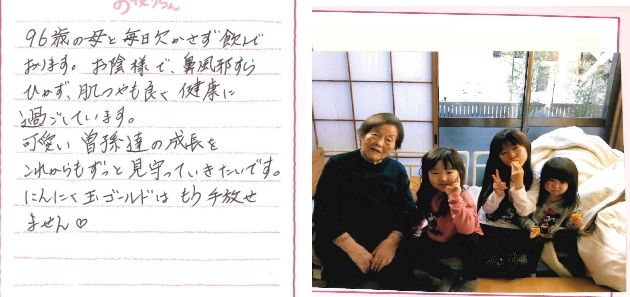 お便りちゃん
96歳の母と毎日欠かさず飲んで
おります。お陰様で、鼻風邪すら
ひかず、肌つやも良く健康に
過ごしています。
可愛い曽孫達の成長を
これからもずっと見守っていきたいです。
にんにく玉ゴールドはもう手放せ
ません♡